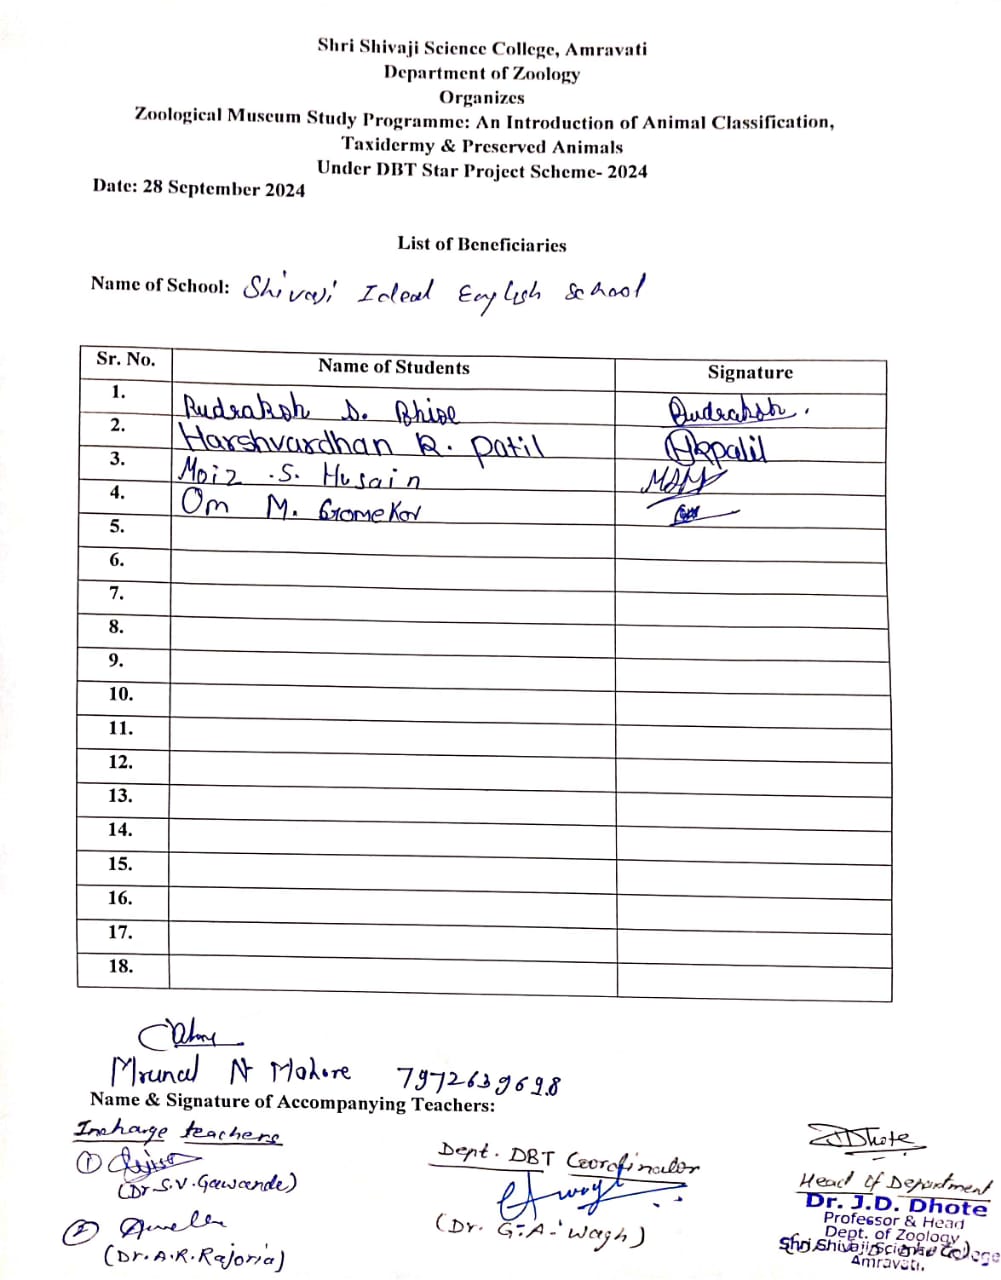 Shri Shivaji Science College, Amravati
Department of Zoology
Organizes
Zoological Museum Study Programme: An Introduction of Animal Classification,
Taxidermy & Preserved Animals
Under DBT Star Project Scheme- 2024
Date: 28 September 2024
List of Beneficiaries
Name of School: Shivaji Ideal English School
Sr. No. Name of Students Signature
1. Rudraksh S. Bhise Rudraksh.
2. Harshvardhan R. Patil HRPatil
3. Moiz .S. Husain
4. Om M. Gomekar
5.
6.
7.
8.
9.
10.
11.
12.
13.
14.
15.
16.
17.
18.
Mrunal N Mohore 7972639698
Name & Signature of Accompanying Teachers:
Incharge teachers
①
(Dr. S.V. Gawande)
②
(Dr. A.R. Rajoria)
Dept. DBT Coordinator
(Dr. G.A. Wagh)
JDDhote
Head of Department
Dr. J.D. Dhote
Professor & Head
Dept. of Zoology
Shri Shivaji Science College
Amravati.